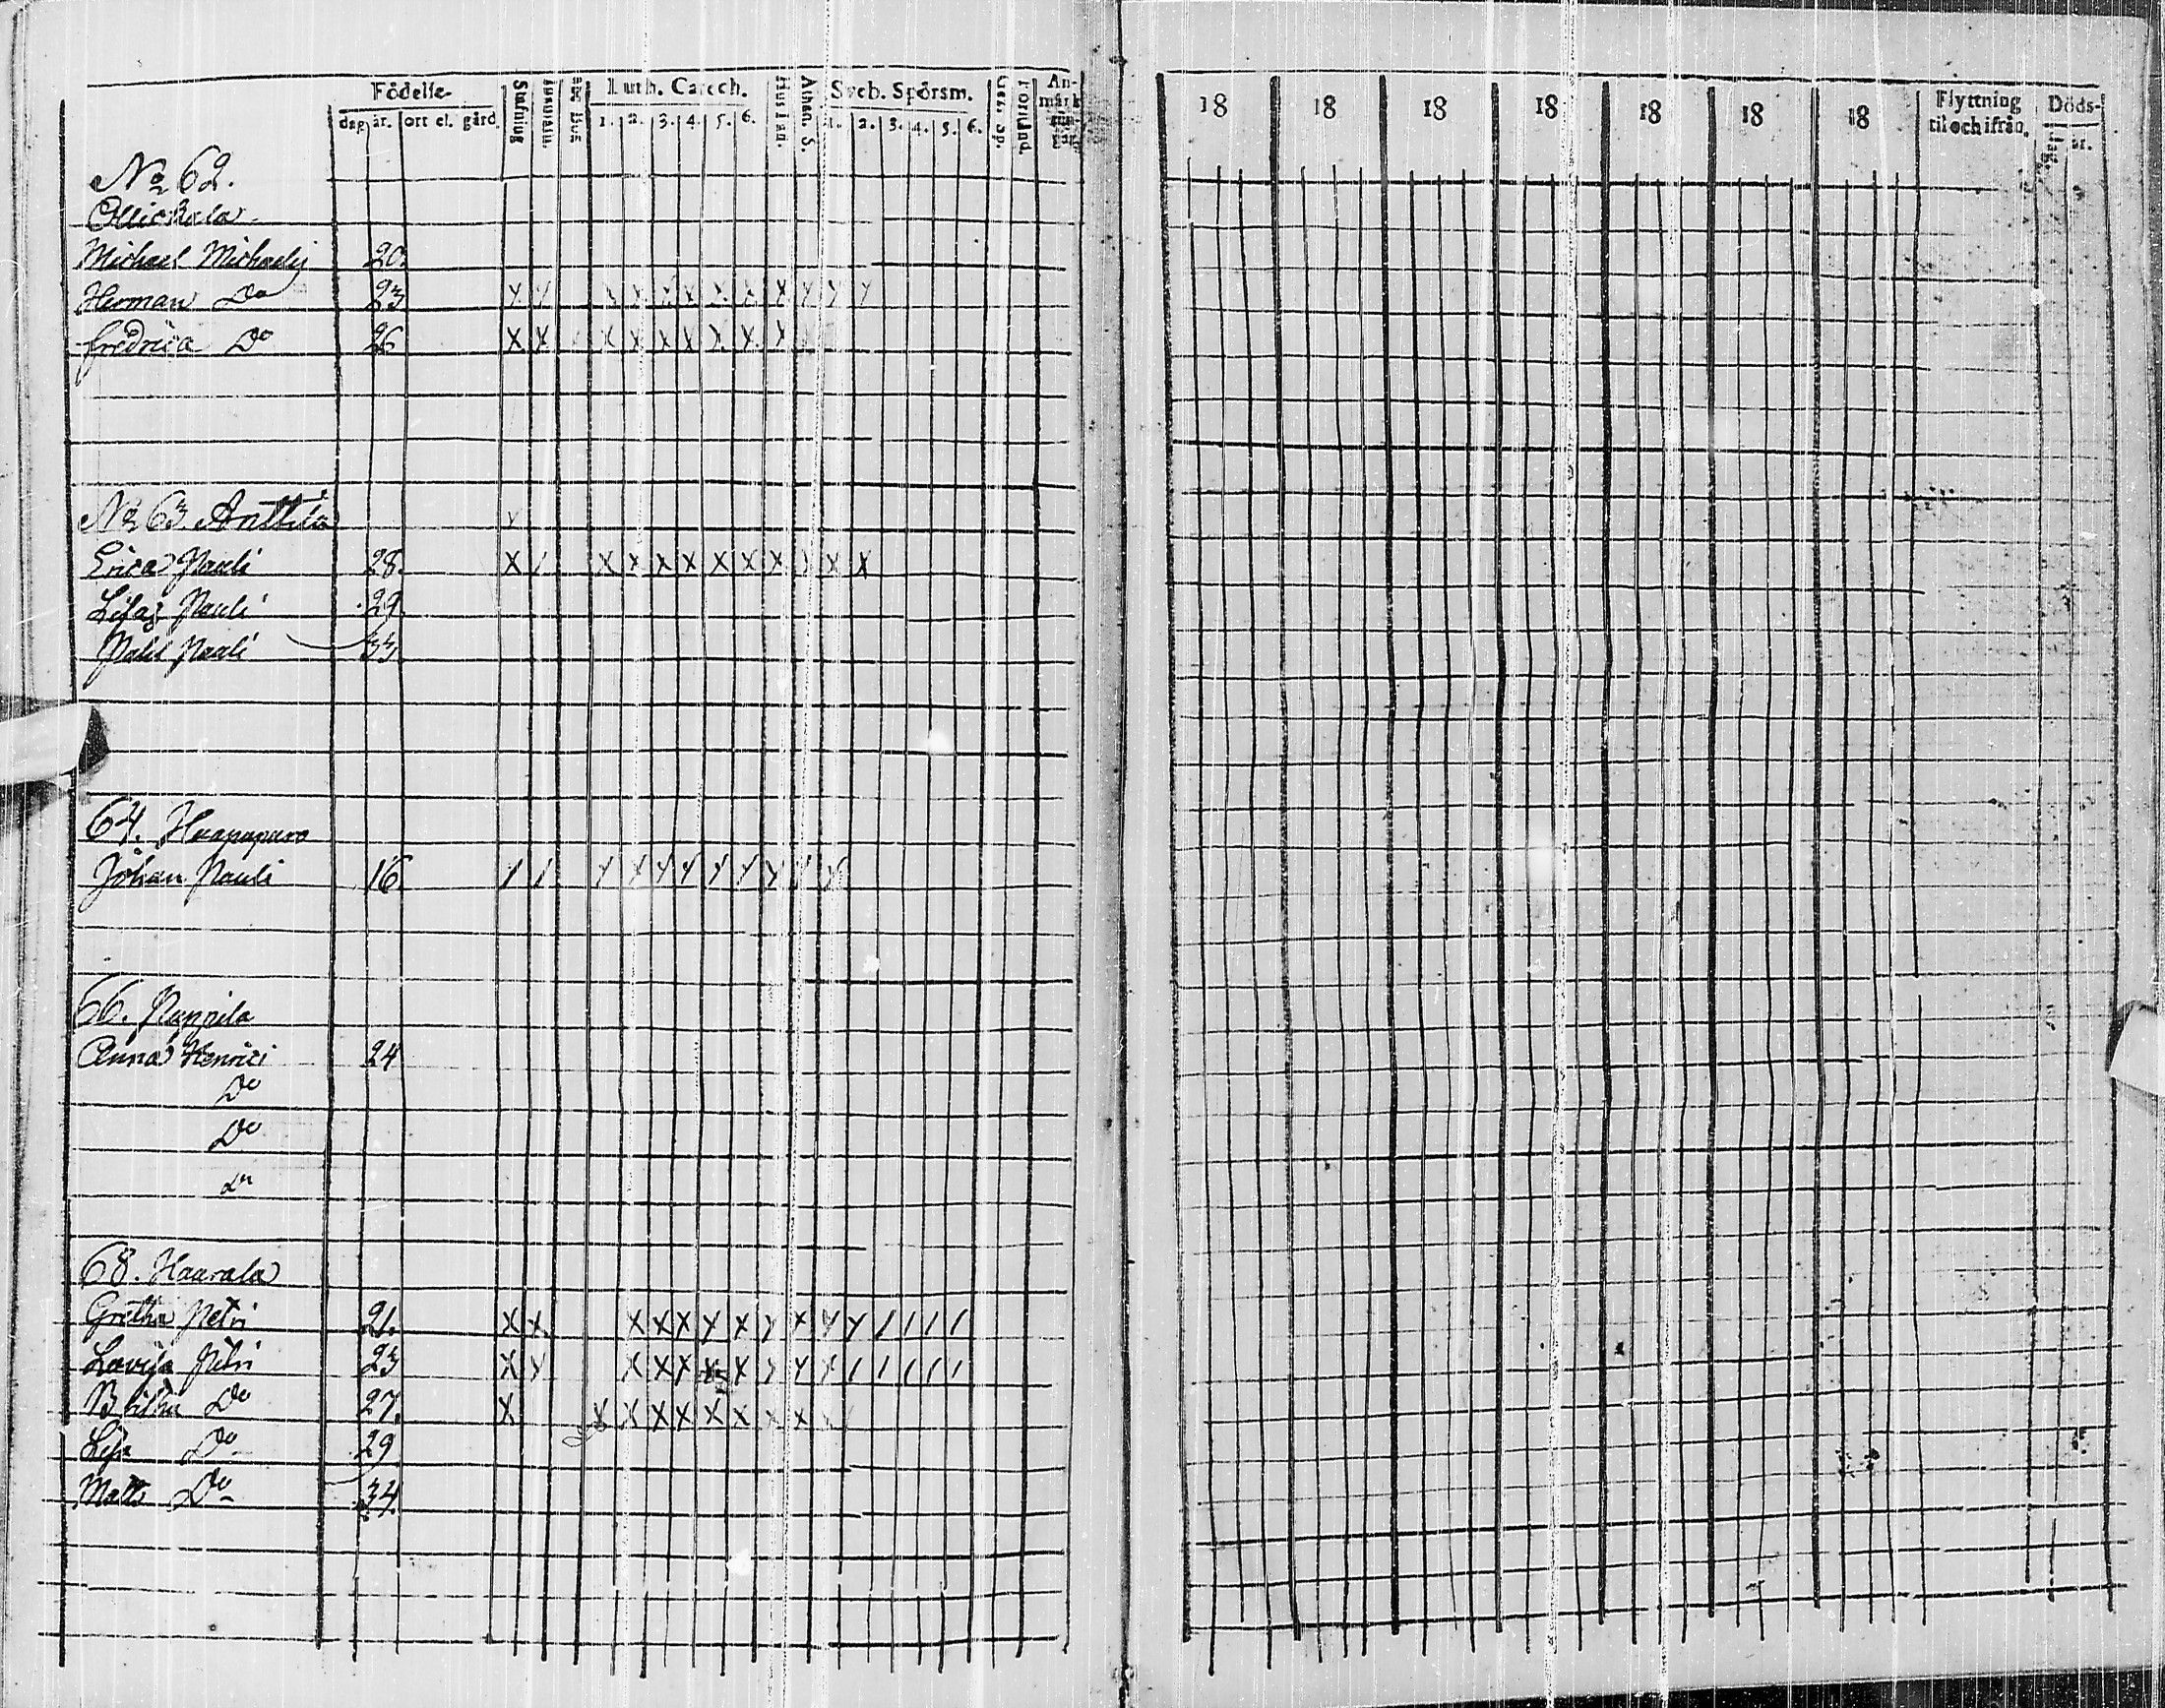 Födelse-
dag år. ort el. gård.
Stafning
Luth. Catech.
1. 2. 3. 4. 5. 6.
Athan. S.
Sveb. Spörsm.
1. 2. 3. 4. 5. 6.
An-
18 18 18 18 18 18 18
Flyttning
til och ifrån.
Döds-
dag. år.
No 62.
Ollickala
Michael Michaelis 20.
Herman Do 23
fredrica Do 26
No 63 Anttila
Erica Pauli 28.
Lisa Pauli 29.
Pauli 33
64. Haapapuro
Johan Pauli 16
66. Pappila
Anna Henrici 24
Do
Do
Do
68. Haarala
Gretha Petri 21.
Lovisa Petri 23
Do 27.
Lisa Do 29
Matts Do 34.